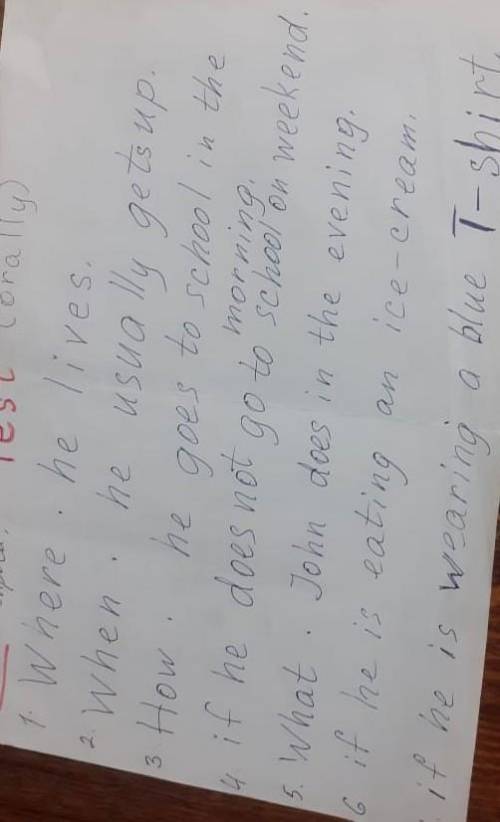 Test (orally)
1. Where. he lives.
2. When. he usually gets up.
3 How. he goes to school in the
morning.
4 if he does not go to school on weekend.
5. What. John does in the evening.
6 if he is eating an ice-cream.
if he is wearing a blue T-shirt.